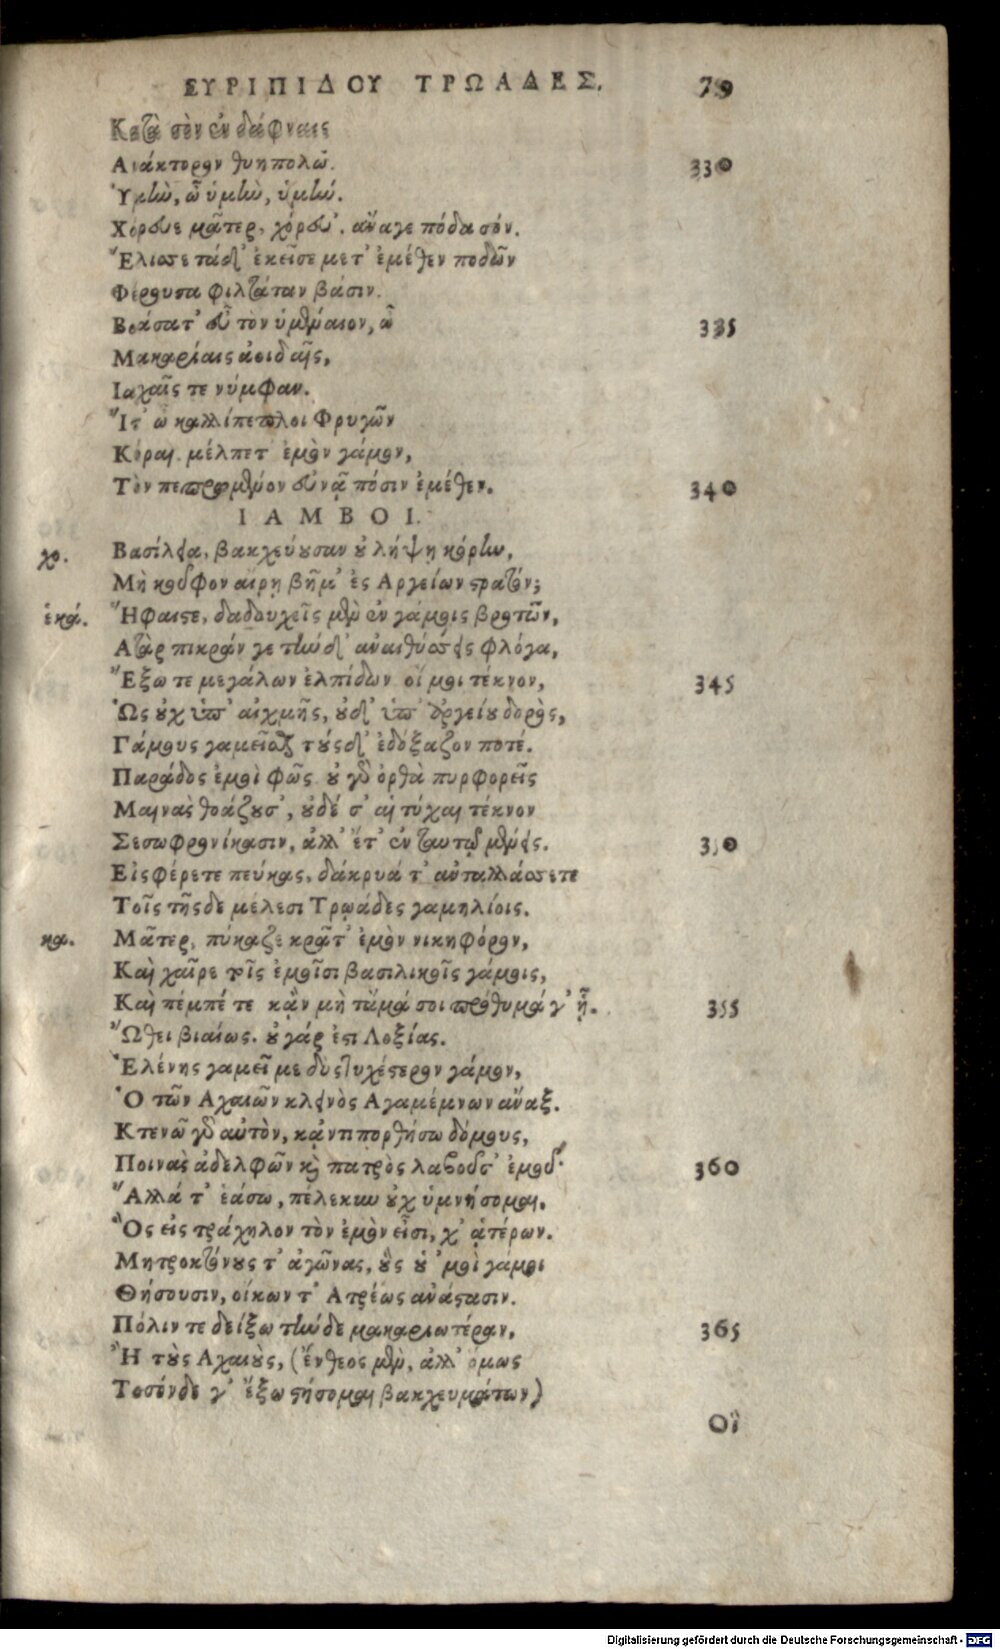 ΕΥΡΙΠΙΔΟΥ ΤΡΩΑΔΕΣ. 79
Κατὰ σὸν ἐν δάφναις
Ανάκτορον θυηπολῶ. 330
Ὑμὴν, ὦ ὑμὴν, ὑμήν.
Χόρευε μᾶτερ, χόρευ', ἄναγε πόδα σόν.
Ἕλισσε τάδ' ἐκεῖσε μετ' ἐμέθεν ποδῶν
Φέρουσα φιλτάταν βάσιν.
Βοάσατ' εὖ τὸν ὑμέναιον, ὦ 335
Μακαρίαις ἀοιδαῖς,
Ιαχαῖς τε νύμφαν.
Ἴτ' ὦ καλλίπεπλοι Φρυγῶν
Κόραι. μέλπετ' ἐμὸν γάμον,
Τὸν πεπρωμένον εὐνᾷ πόσιν ἐμέθεν. 340
ΙΑΜΒΟΙ.
χο. Βασίλεια, βακχεύουσαν οὐ λήψῃ κόρην,
Μὴ κοῦφον αἴρῃ βῆμ' ἐς Αργείων στρατόν;
ἑκά. Ἥφαιστε, δᾳδουχεῖς μὲν ἐν γάμοις βροτῶν,
Ατὰρ πικράν γε τήνδ' ἀναιθύσσεις φλόγα,
Ἔξω τε μεγάλων ἐλπίδων οἴ μοι τέκνον, 345
Ὡς οὐχ ὑπ' αἰχμῆς, οὐδ' ὑπ' Ἀργείου δορὸς,
Γάμους γαμεῖσθαι τούσδ' ἐδόξαζον ποτέ.
Παράδος ἐμοὶ φῶς οὐ γὰρ ὀρθὰ πυρφορεῖς
Μαινὰς θοάζουσ', οὐδέ σ' αἱ τύχαι τέκνον
Σεσωφρονίκασιν, ἀλλ' ἔτ' ἐν ταυτῷ μένεις. 350
Εἰσφέρετε πεύκας, δάκρυά τ' ἀνταλλάσσετε
Τοῖς τῆσδε μέλεσι Τρῳάδες γαμηλίοις.
κα. Μᾶτερ, πύκαζε κρᾶτ' ἐμὸν νικηφόρον,
Καὶ χαῖρε τοῖς ἐμοῖσι βασιλικοῖς γάμοις,
Καὶ πέμπέ τε κἂν μὴ τἄμά σοι πρόθυμά γ' ᾖ. 355
Ὤθει βιαίως. οὐ γάρ ἐστι Λοξίας.
Ἑλένης γαμεῖ με δυστυχέστερον γάμον,
Ὁ τῶν Αχαιῶν κλεινὸς Αγαμέμνων ἄναξ.
Κτενῶ γὰρ αὐτὸν, κἀντιπορθήσω δόμους,
Ποινὰς ἀδελφῶν καὶ πατρὸς λαβοῦσ' ἐμοῦ· 360
Ἀλλά τ' ἐάσω, πέλεκυν οὐχ ὑμνήσομαι,
Ὃς εἰς τράχηλον τὸν ἐμὸν εἶσι, χ' ἁτέρων.
Μητροκτόνους τ' ἀγῶνας, οὓς οὑ 'μοὶ γάμοι
Θήσουσιν, οἴκων τ' Ατρέως ἀνάστασιν.
Πόλιν τε δείξω τήνδε μακαριωτέραν, 365
Ἢ τοὺς Αχαιοὺς, (ἔνθεος μὲν, ἀλλ' ὅμως
Τοσόνδε γ' ἔξω στήσομαι βακχευμάτων)
Οἳ
Digitalisierung gefördert durch die Deutsche Forschungsgemeinschaft - DFG